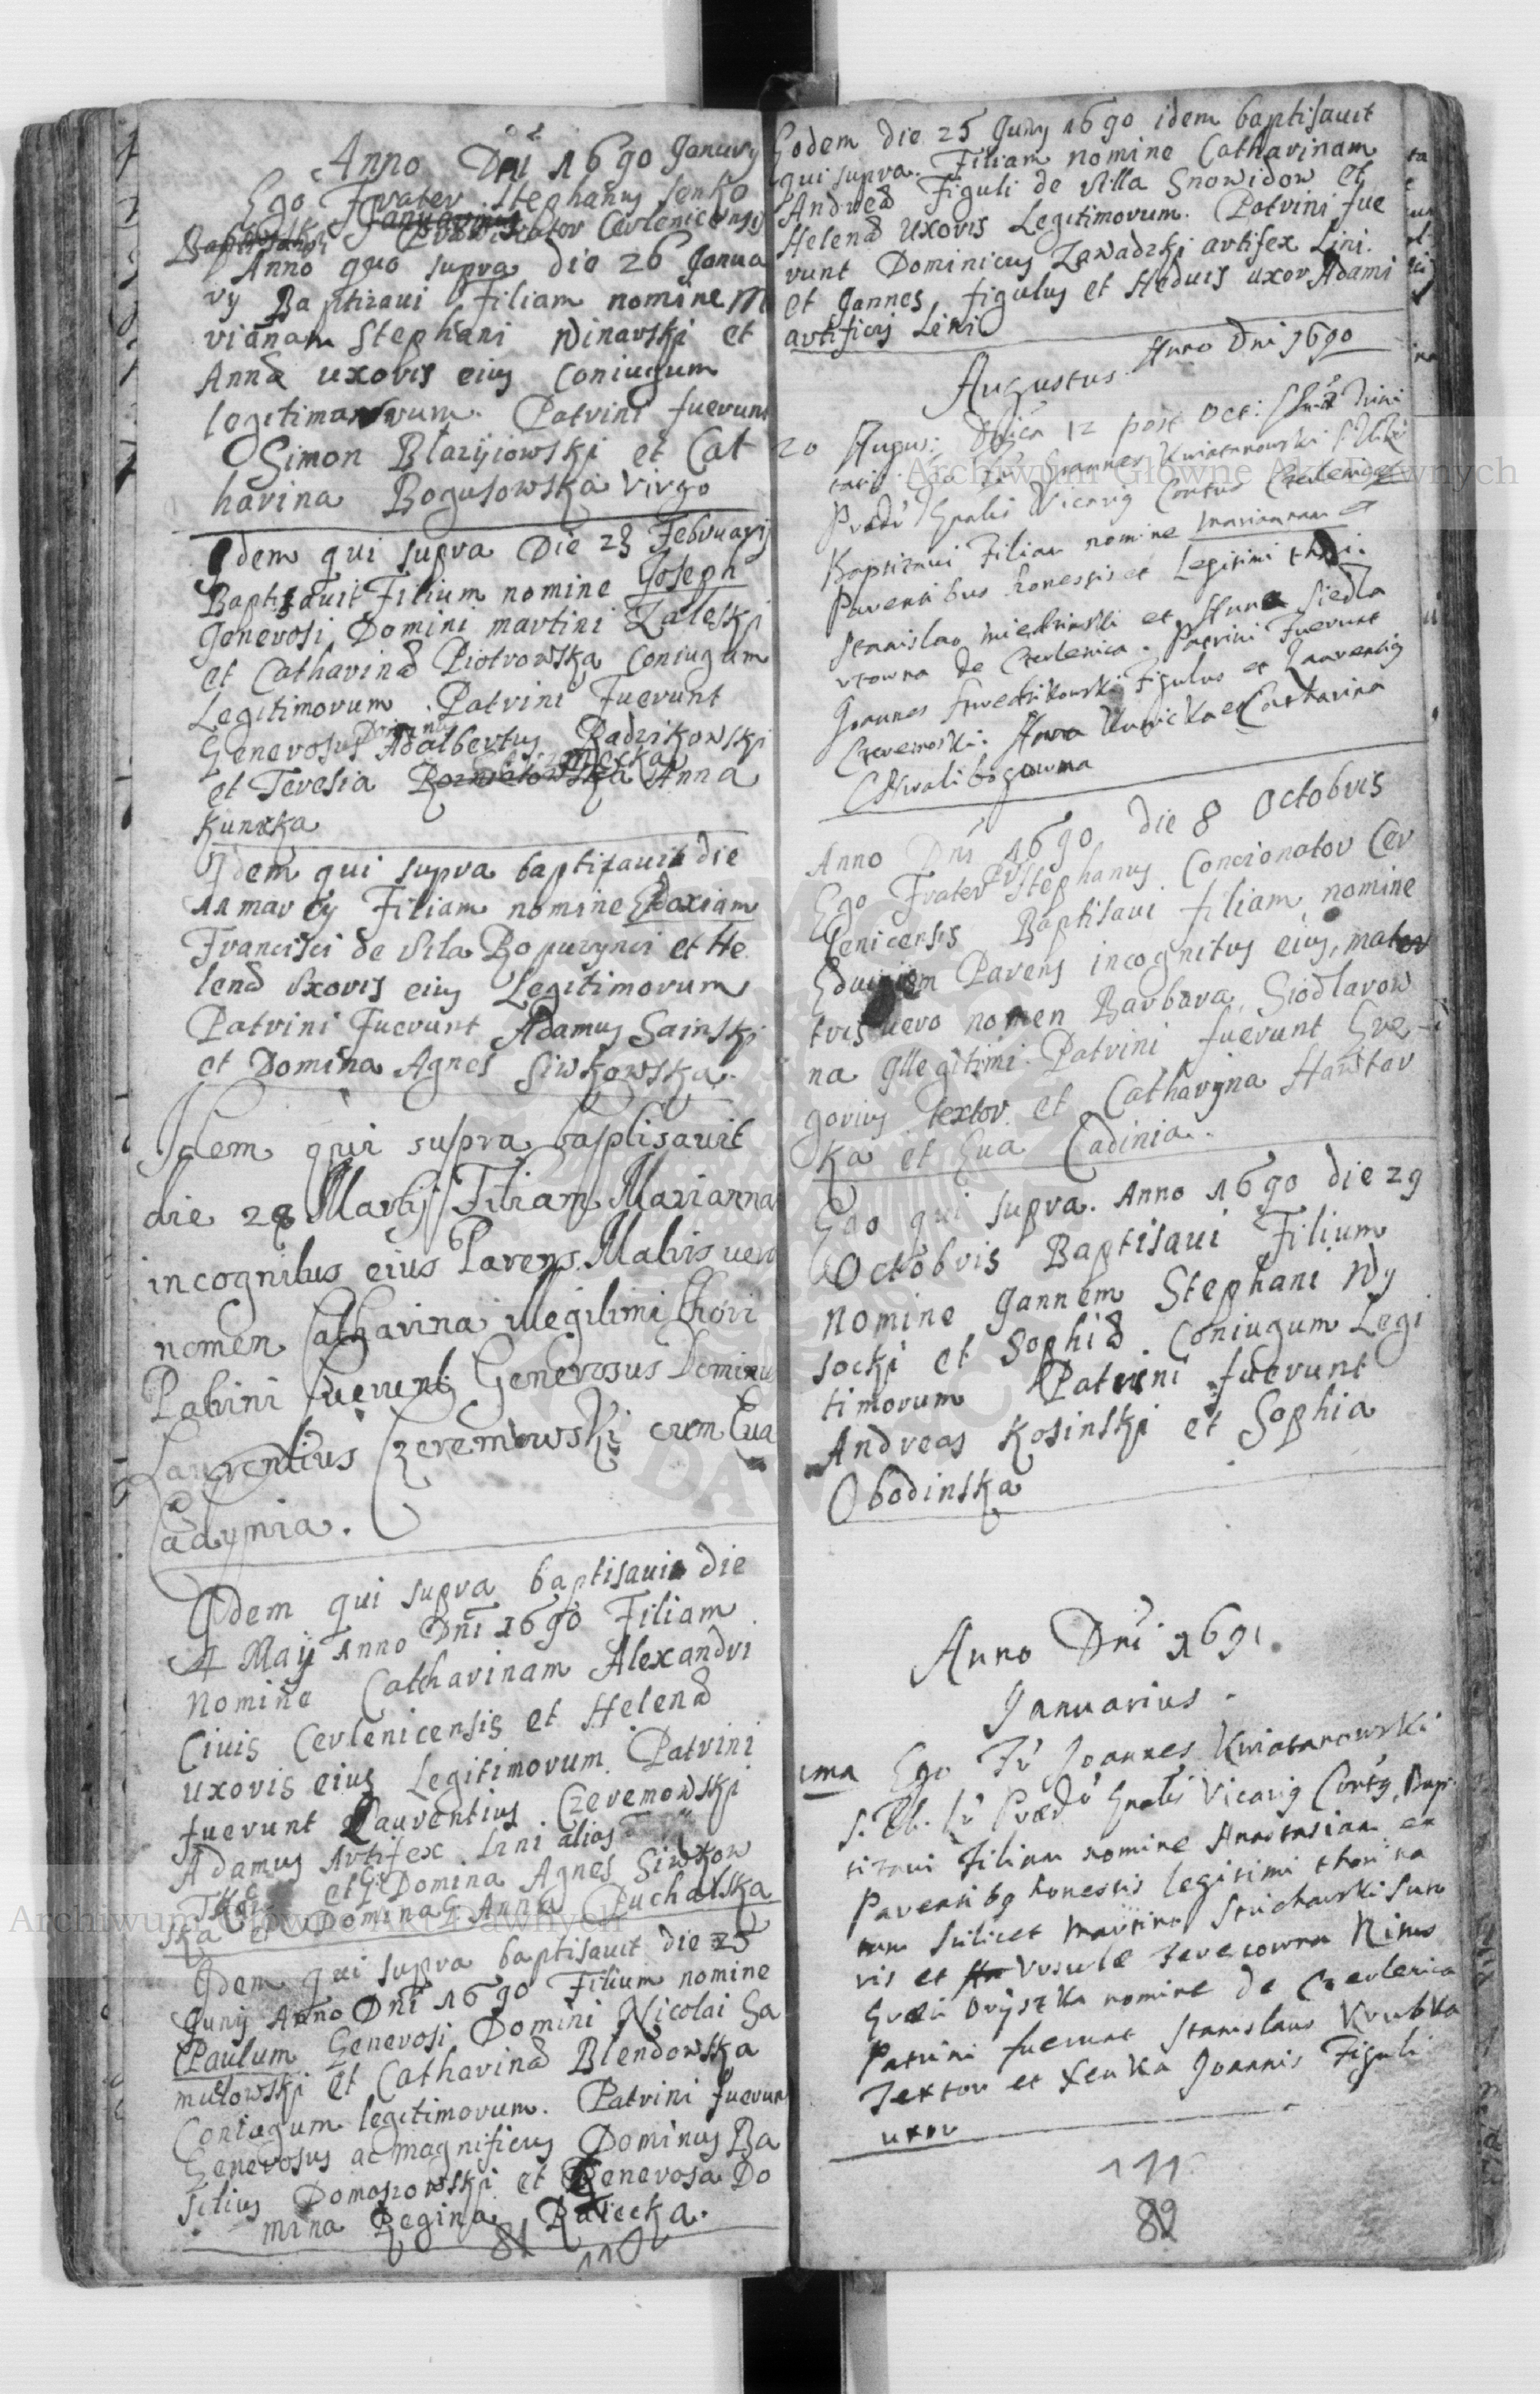 Anno Dni 1690 January
Ego Frater Stephanus Senko
Concionator Cerlenicensis
Anno quo supra die 26 Janua
ry Baptizaui Filiam nomine M
riánam Stephani Winarski et
Annæ uxoris eius Coniugum
legitimorum. Patrini fuerunt
Simon Błazijowski et Cat
harina Bogusowska Virgo
Idem qui supra Die 23 February
Baptizauit Filium nomine Joseph
Generosi Domini martini Zaleski
et Catharinæ Piotrowska Coniugum
Legitimorum. Patrini Fuerunt
Generosus Dominus Adalbertus Radzikowski
et Teresia Anna
Kunxka
Idem qui supra baptizauit die
11 marty Filiam nomine Edoxiam
Francisci de Vila Ropuzynci et He
lenæ Vxoris eius Legitimorum
Patrini Fuerunt Adamus Sainski
et Domina Agnes Siwkowska.
Idem qui supra baptisauit
die 28 Martij Filiam Marianna
incognitus eius Parens. Matris uero
nomen Catharina illegitimi thori
Patrini fuerunt Generosus Dominus
Laurentius Czeremowski cum Eua
Cadynia.
Idem qui supra baptisauit die
4 Maij Anno Dni 1690 Filiam
Nomine Catharinam Alexandri
Ciuis Cerlenicensis et Helenæ
uxoris eius Legitimorum. Patrini
fuerunt Laurentius Czeremowski
Adamus Artifex Lini alias
et G Domina Agnes Siwkow
ska et Domina G Anna Pucharska
Idem qui supra baptisauit die 25
Juny Anno Dni 1690 Filium nomine
Paulum Generosi Domini Nicolai Ga
mułowski et Catharinæ Blendowska
Coniugum legitimorum. Patrini fuerun
Generosus ac magnificus Dominus Ba
silius Domoszowski et Generosa Do
mina Regina Raiecka.
81 110
Eodem die 25 Juny 1690 idem baptisauit
qui supra. Filiam nomine Catharinam
Andreæ Figuli de Villa Snowidow et
Helenæ Uxoris Legitimorum. Patrini fue
runt Dominicus Zawadzki artifex Lini.
et Jannes figulus et Heduis uxor Adami
artificis Lini
Anno Dni 1690
Augustus
20 Augus: Dnica 12 post Oct: SSmæ Trini
tatis Joannes Kwiatanowski
Præd: Gnalis Vicarig Contus Czerlenicen
Baptizaui Filiam nomine Mariannam ex
Parentibus honestis et Legitimi thori.
Stanislao Miedzinski et Anna Siedla
rzowna de Czerlenica. Patrini Fuerunt
Joannes Figulus et Laurentig
Czeremoski. Anna Kunicka et Catharina
Chwalibogowna
Anno Dni 1690 die 8 Octobris
Ego Frater Stephanus Concionator Cer
lenicensis Baptisaui filiam nomine
Parens incognitus eius, mater
tris uero nomen Barbara Siodlarow
na Illegitimi. Patrini fuerunt Gre
gorius textor et Catharyna Hawtar
ka et Eua Cadinia.
Ego qui supra. Anno 1690 die 29
Octobris Baptisaui Filium
Nomine Jannem Stephani Wy
socki et Sophiæ Coniugum Legi
timorum Patrini fuerunt
Andreas Kosinski et Sophia
Obodinska
Anno Dni 1691.
Januarius.
1ma Ego Fr Joannes Kwiatanowski
Præd: Gnalis Vicarig Contg Bap
tizaui Filiam nomine Anastasiam ex
Parentibg honestis legitimi thori na
tam scilicet Martino Suto
ris et Vrsulæ
Oryszka nomine de Czerlenica
Patrini fuerunt Stanislaus Krubka
Textor et Xenka Joannis Figuli
uxor
111
82
Archiwum Główne Akt Dawnych
Archiwum Główne Akt Dawnych